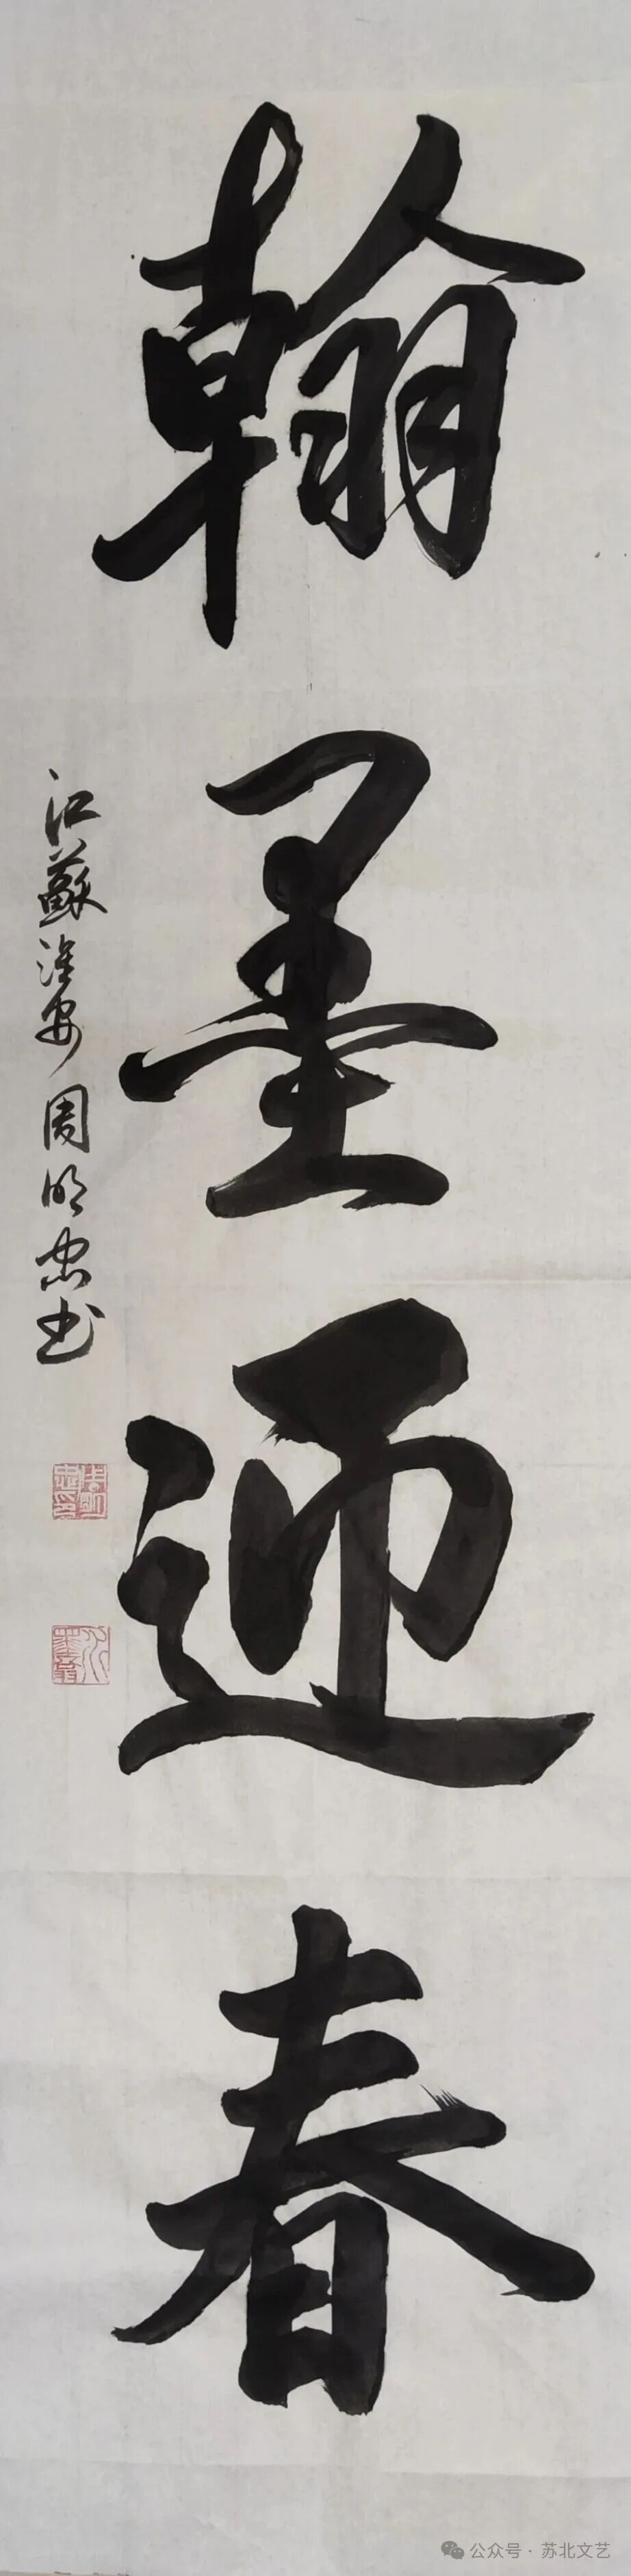 翰墨迎春
江蘇淮安周明忠书
公众号·苏北文艺